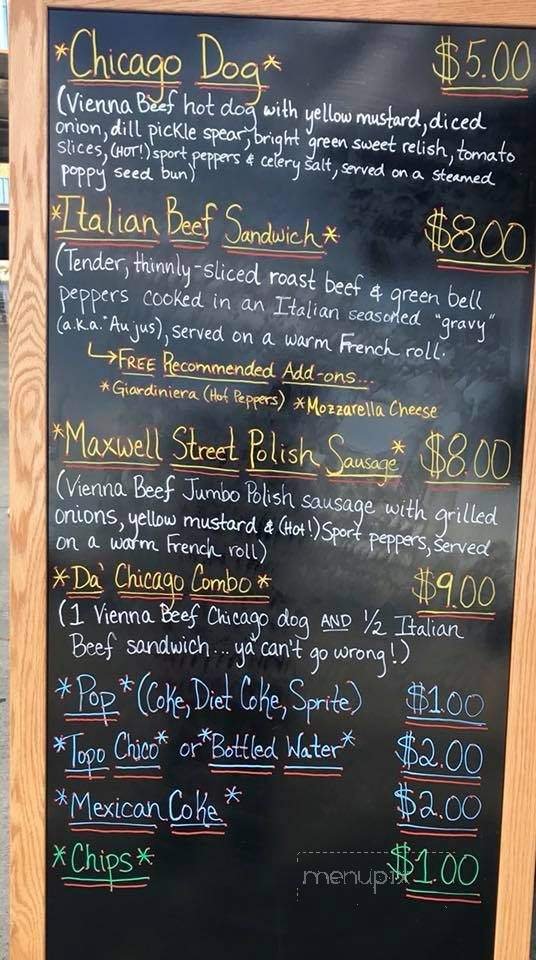 *Chicago Dog* $5.00
(Vienna Beef hot dog with yellow mustard, diced
onion, dill pickle spear, bright green sweet relish, tomato
slices, (HOT!) sport peppers & celery salt, served on a steamed
poppy seed bun)
*Italian Beef Sandwich* $8.00
(Tender, thinnly-sliced roast beef & green bell
peppers cooked in an Italian seasoned "gravy"
(a.k.a. "Au jus), served on a warm French roll.
↳FREE Recommended Add-ons...
*Giardiniera (Hot Peppers) *Mozzarella Cheese
*Maxwell Street Polish Sausage* $8.00
(Vienna Beef Jumbo Polish sausage with grilled
onions, yellow mustard & (Hot!) Sport peppers, served
on a warm French roll)
*Da' Chicago Combo* $9.00
(1 Vienna Beef Chicago dog AND 1/2 Italian
Beef sandwich... ya can't go wrong!)
*Pop* (Coke, Diet Coke, Sprite) $1.00
*Topo Chico* or *Bottled Water* $2.00
*Mexican Coke* $2.00
*Chips* $1.00
menupix